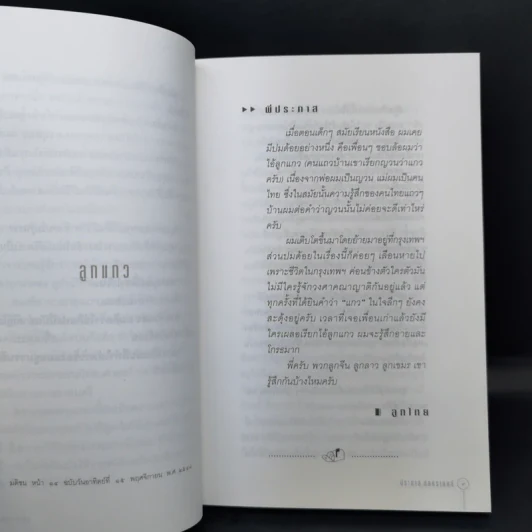 ลูกแกว
มติชน หน้า ๑๔ ฉบับวันอาทิตย์ที่ ๑๕ พฤศจิกายน พ.ศ.
พี่ประภาส
เมื่อตอนเด็กๆ สมัยเรียนหนังสือ ผมเคย
มีปมด้อยอย่างหนึ่ง คือเพื่อนๆ ชอบล้อผมว่า
ไอ้ลูกแกว (คนแถวบ้านเขาเรียกญวนว่าแกว
ครับ) เนื่องจากพ่อผมเป็นญวน แม่ผมเป็นคน
ไทย ซึ่งในสมัยนั้นความรู้สึกของคนไทยแถวๆ
บ้านผมต่อคำว่าญวนนั้นไม่ค่อยจะดีเท่าไหร่
ครับ
ผมเติบโตขึ้นมาโดยย้ายมาอยู่ที่กรุงเทพฯ
ส่วนปมด้อยในเรื่องนี้ก็ค่อยๆ เลือนหายไป
เพราะชีวิตในกรุงเทพฯ ค่อนข้างตัวใครตัวมัน
ไม่มีใครรู้จักวงศาคณาญาติกันอยู่แล้ว แต่
ทุกครั้งที่ได้ยินคำว่า "แกว" ในใจลึกๆ ยังคง
สะดุ้งอยู่ครับ เวลาที่เจอเพื่อนเก่าแล้วยังมี
ใครเผลอเรียกไอ้ลูกแกว ผมจะรู้สึกอายและ
โกรธมาก
พี่ครับ พวกลูกจีน ลูกลาว ลูกเขมร เขา
รู้สึกกันบ้างไหมครับ
ลูกไทย